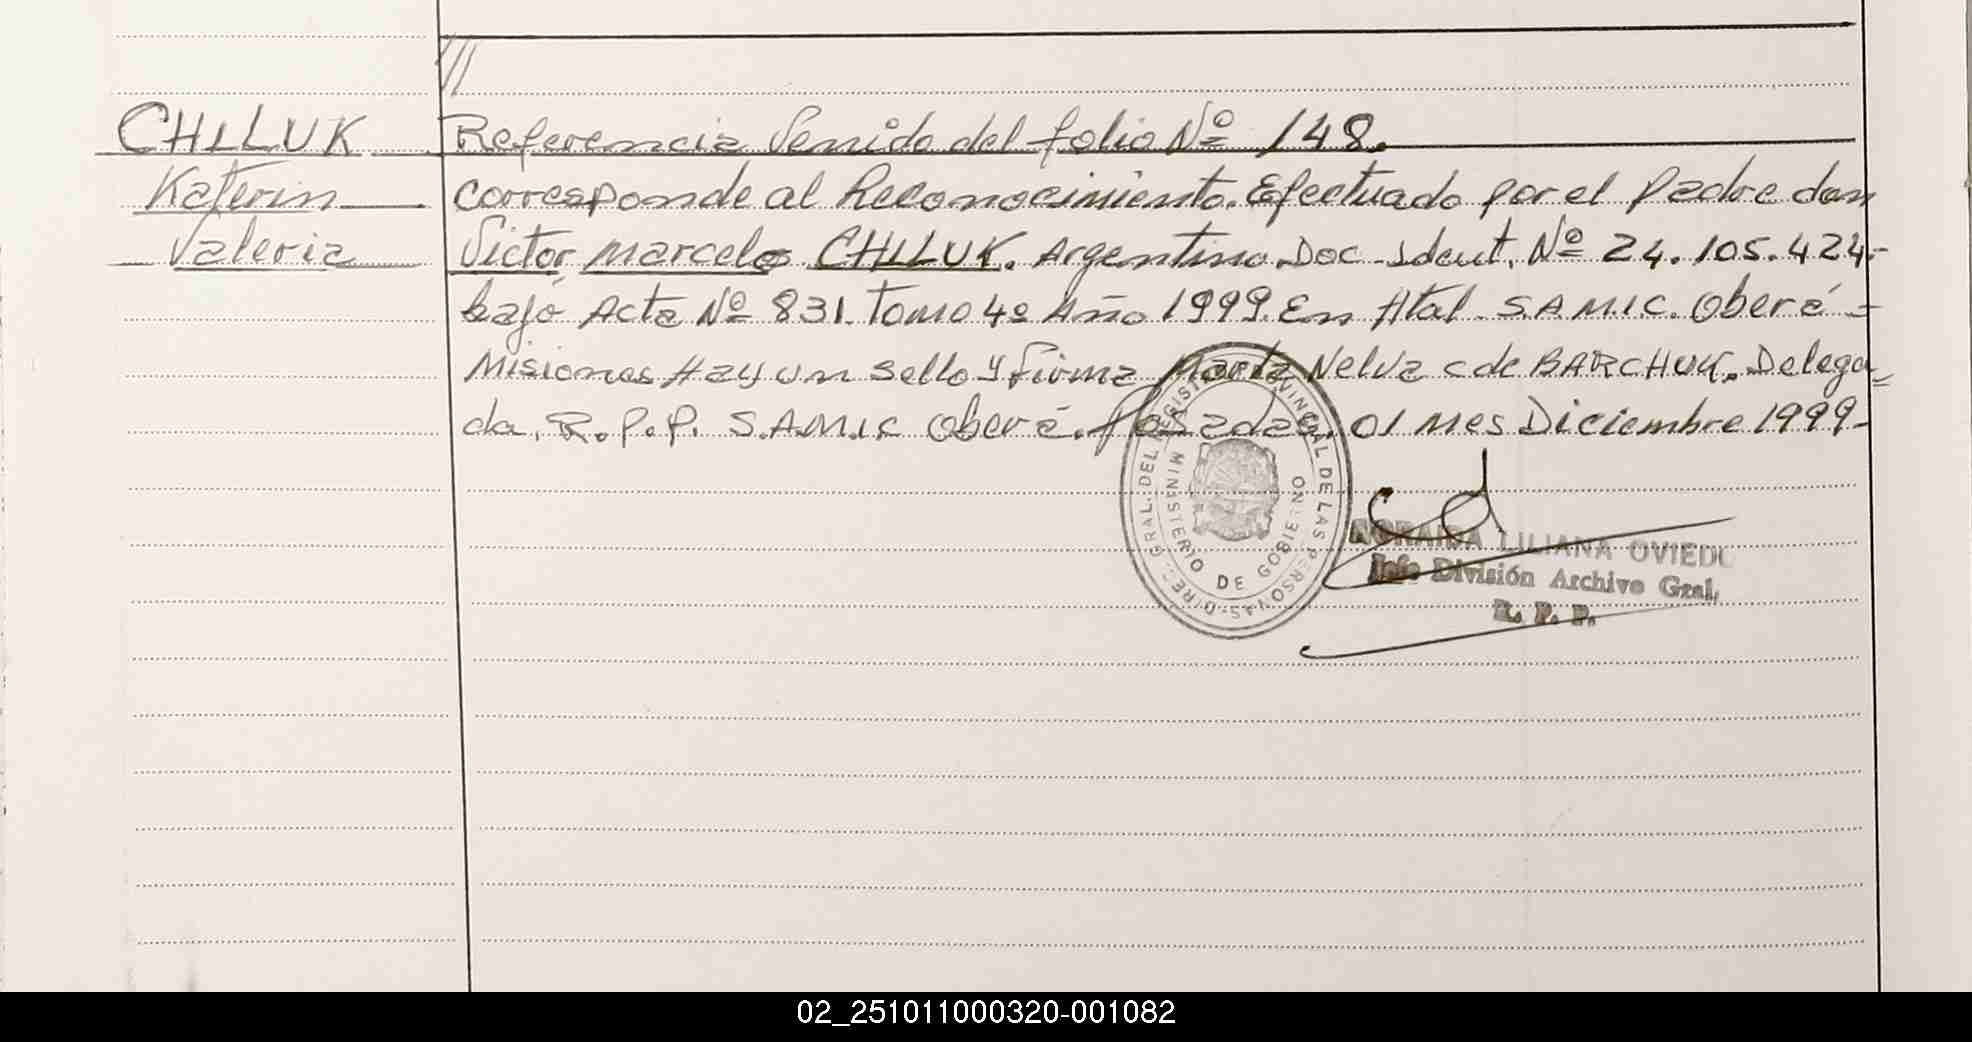 ///
CHILUK Referencia Venido del folio Nº 148.
Katerin corresponde al Reconocimiento. Efectuado por el padre don
Valeria Victor Marcelo CHILUK. Argentino. Doc. Ident. Nº 24.105.424-
bajo Acta Nº 831. Tomo 4º Año 1999. En Htal. S.A.M.I.C. Oberá -
Misiones Hay un Sello y firma Marta Nelva c de BARCHUK. Delega=
da. R.P.P. S.A.M.I.C Oberá. Posadas. 01 mes Diciembre 1999-
DIREC. GRAL. DEL REGISTRO PROVINCIAL DE LAS PERSONAS-
MINISTERIO DE GOBIERNO
NORAIDA LILIANA OVIEDO
Jefe División Archivo Gral.
R. P. P.
02_251011000320-001082